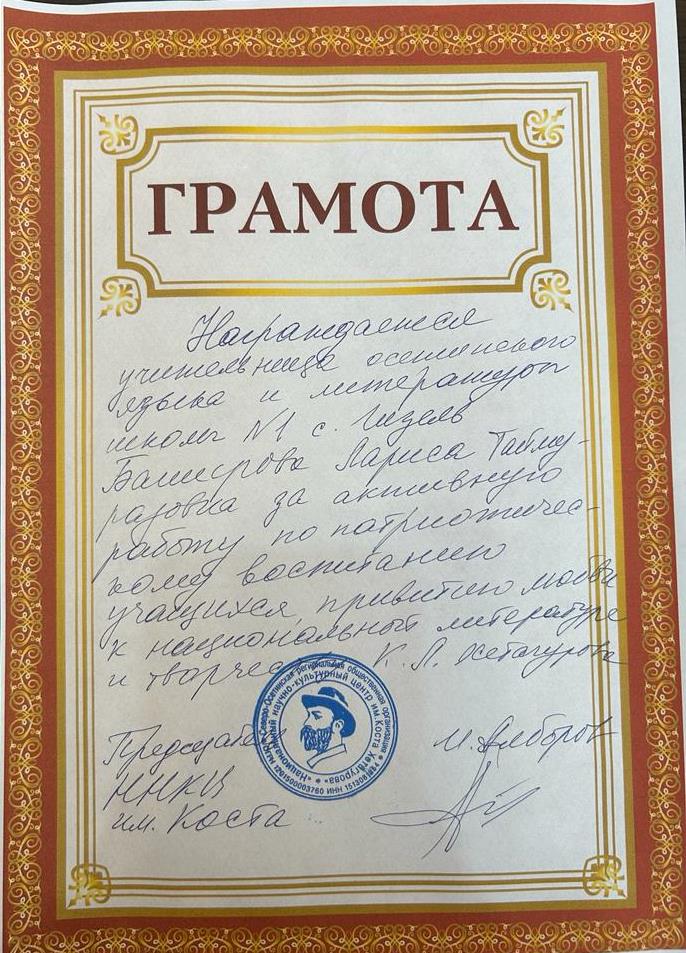 ГРАМОТА
Награждается
учительница осетинского
языка и литературы
школы №1 с. Гизель
Баширова Лариса Таймураз-
разовна за активную
работу по патриотичес-
кому воспитанию
учащихся, привитию любви
к национальной литературе
и творчеству К. Л. Хетагурова
Председатель М. Алборов
ННКЦ
им. Коста
Северо-Осетинская региональная общественная организация
«Национальный научно-культурный центр им. Коста Хетагурова»